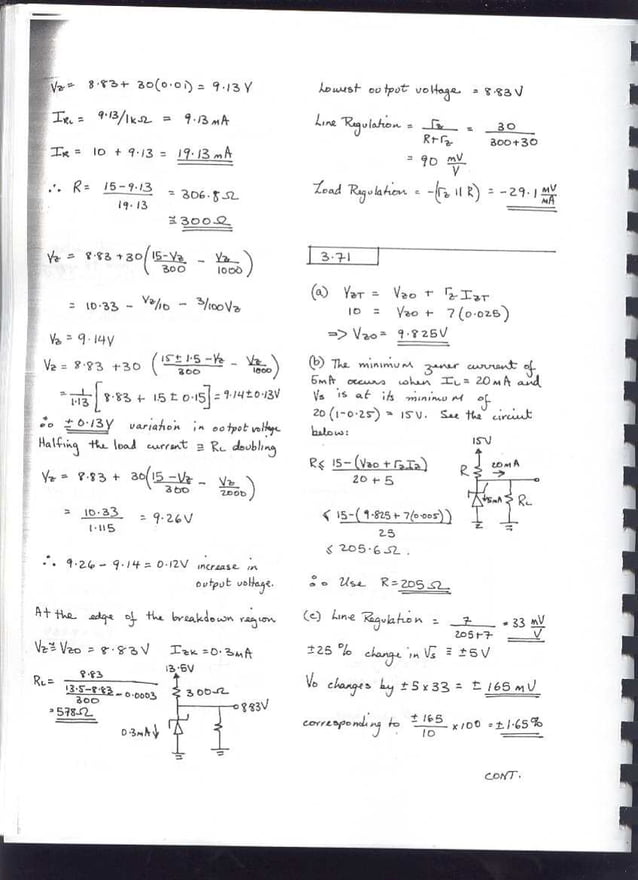 Vz = 8.83 + 30(0.01) = 9.13 V
I_RL = 9.13/1kΩ = 9.13 mA
I_R = 10 + 9.13 = 19.13 mA
∴ R = (15-9.13)/19.13 = 306.8 Ω
≅ 300 Ω
Vz = 8.83 + 30((15-Vz)/300 - Vz/1000)
= 10.33 - Vz/10 - 3/100 Vz
Vz = 9.14V
Vz = 8.83 + 30 ((15 ± 1.5 - Vz)/300 - Vz/1000)
= 1/1.13 [8.83 + 15 ± 0.15] = 9.14 ± 0.13V
∴ ± 0.13V variation in output voltage
Halfing the load current ≡ RL doubling
Vz = 8.83 + 30((15 - Vz)/300 - Vz/2000)
= 10.33/1.115 = 9.26V
∴ 9.26 - 9.14 = 0.12V increase in
output voltage.
At the edge of the breakdown region
Vz ≅ Vzo = 8.83 V I_ZK = 0.3 mA
RL = 8.83/((13.5-8.83)/300 - 0.0003)
= 578Ω
13.5V
300Ω
8.83V
0.3mA ↓
Lowest output voltage = 8.83V
Line Regulation = rz/(R+rz) = 30/(300+30)
= 90 mV/V
Load Regulation = -(rz || R) = -29.1 mV/mA
3.71
(a) VzT = Vzo + rz IzT
10 = Vzo + 7(0.025)
=> Vzo = 9.825V
(b) The minimum zener current of
5mA occurs when IL = 20mA and
Vs is at its minimum of
20(1-0.25) = 15V. See the circuit
below:
R ≤ (15-(Vzo + rz Iz))/(20 + 5)
≤ (15-(9.825 + 7(0.005)))/25
≤ 205.6 Ω.
15V
R
20mA
5mA
RL
∴ Use R = 205 Ω
(c) Line Regulation = 7/(205+7) = 33 mV/V
±25 % change in Vs ≡ ±5V
Vo changes by ±5 x 33 = ± 165 mV
corresponding to ±165/10 x 100 = ±1.65%
CONT.